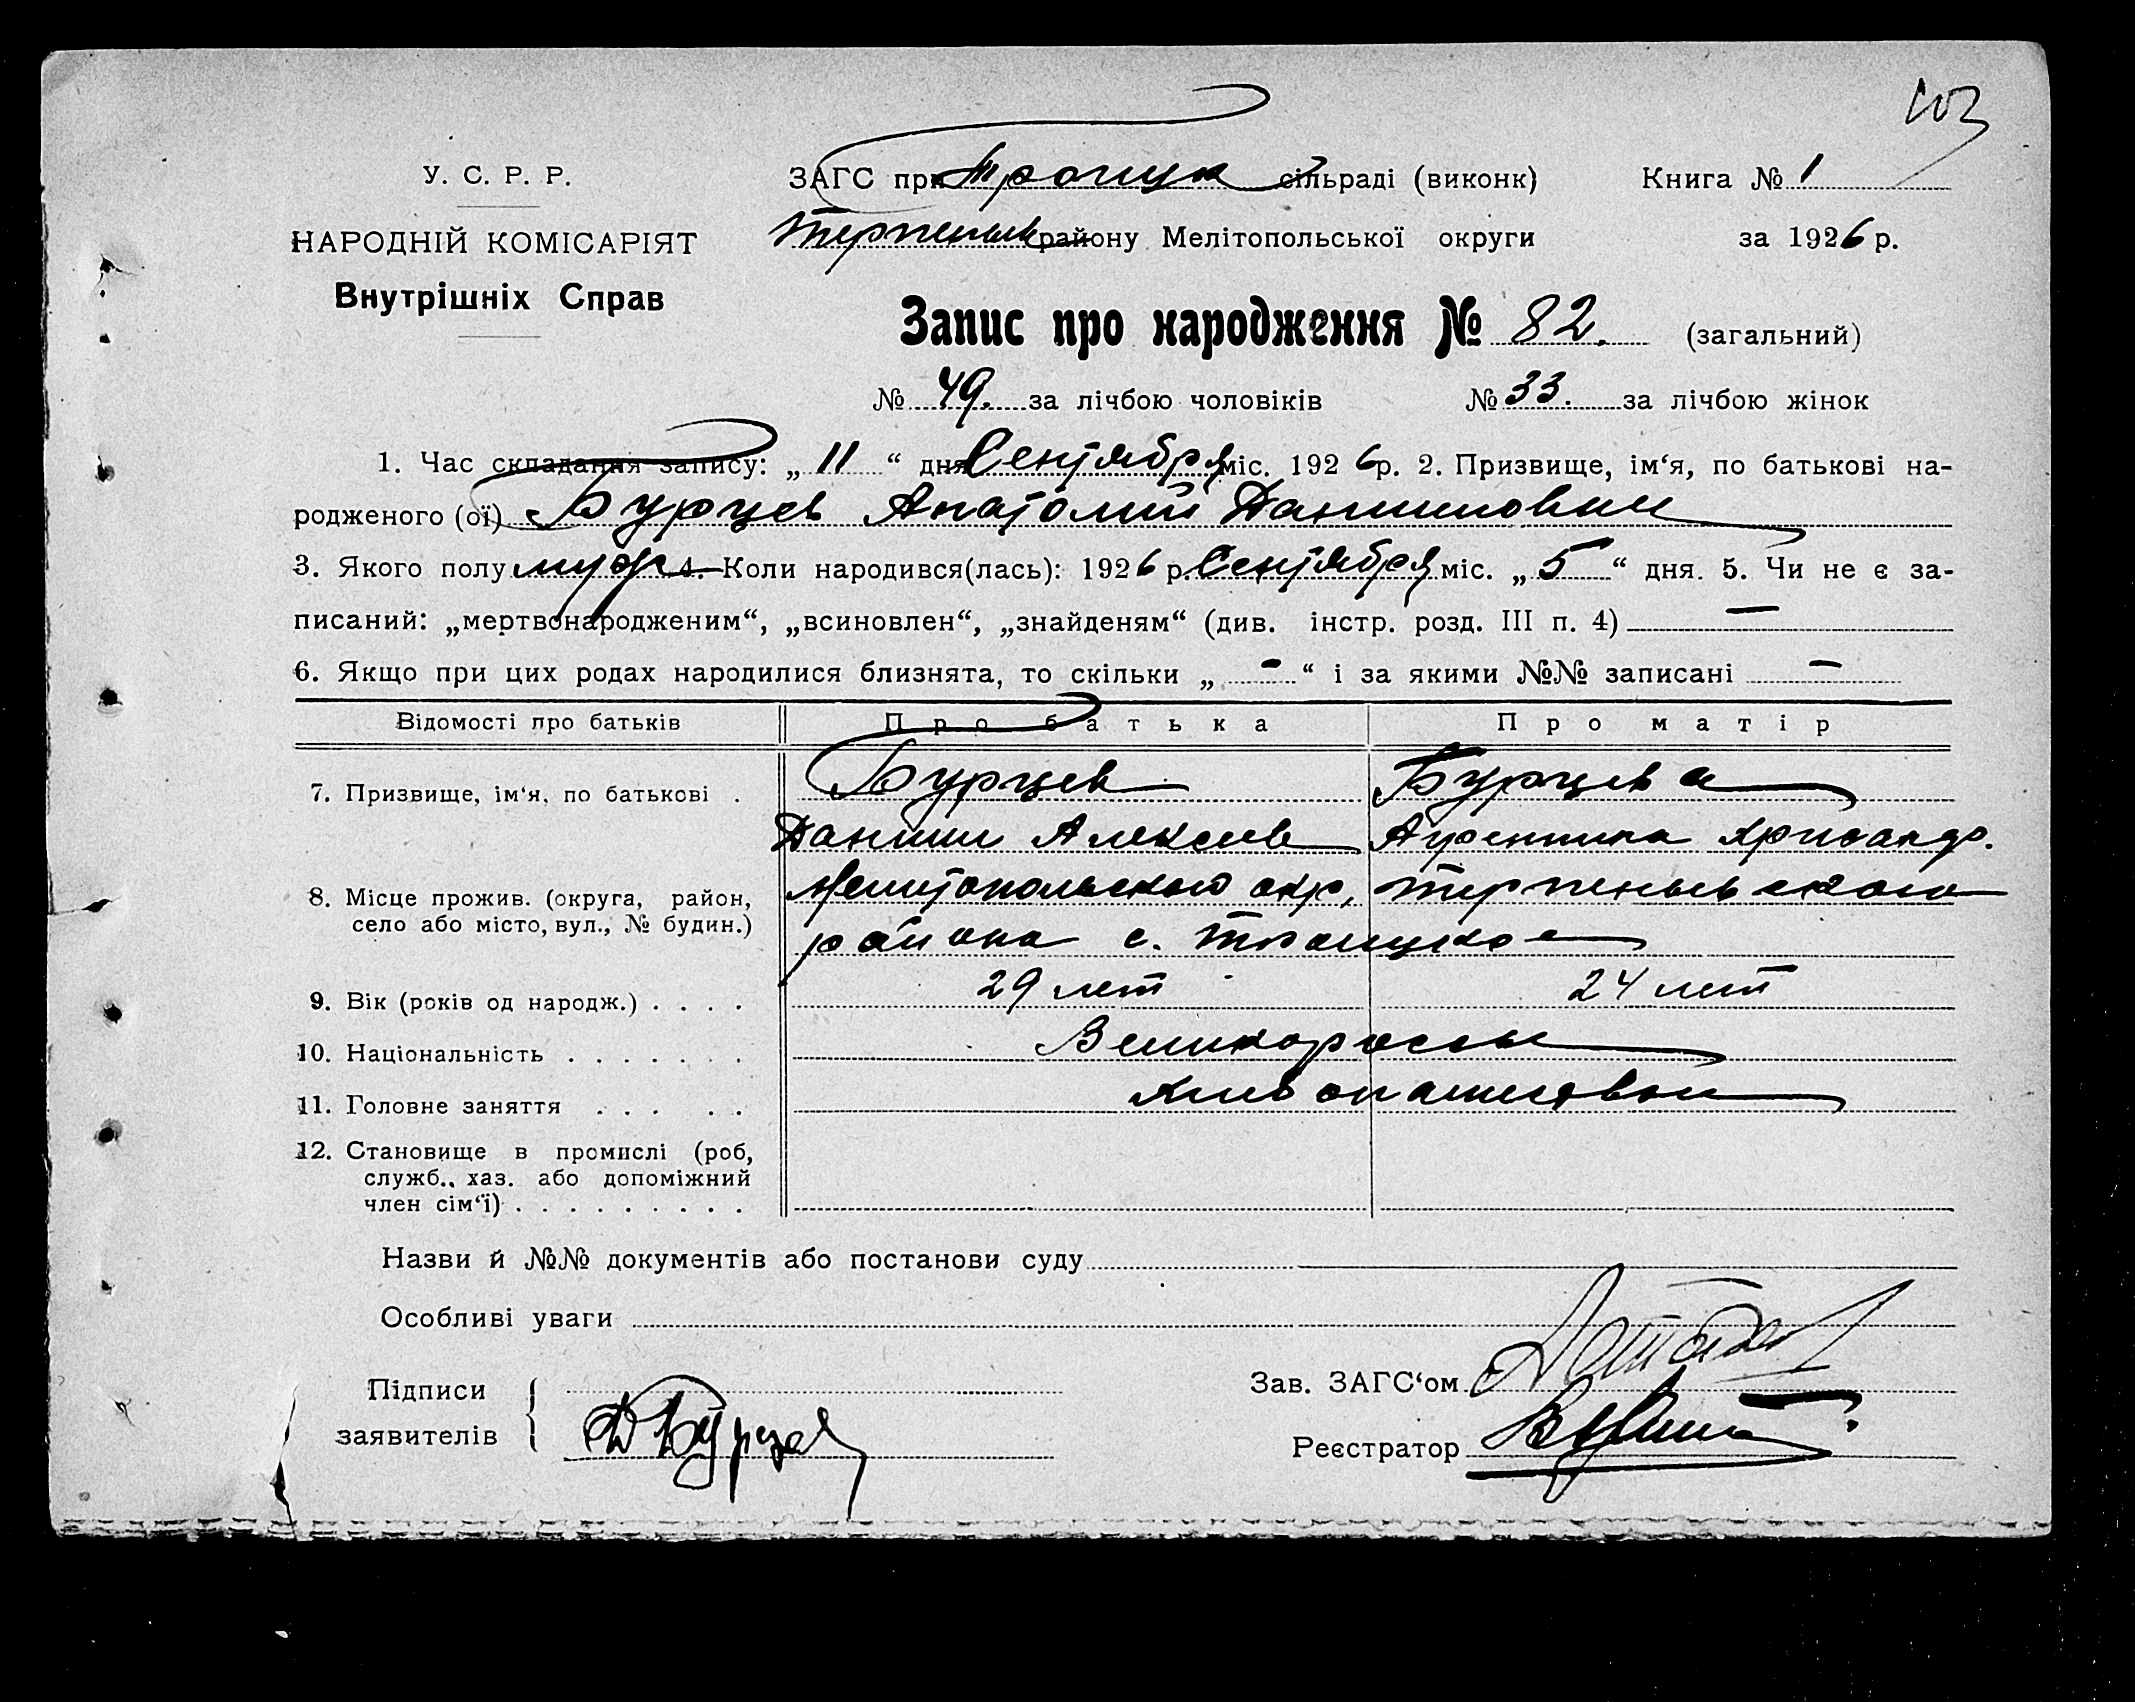 103
У. С. Р. Р.
НАРОДНІЙ КОМІСАРІЯТ
Внутрішніх Справ
ЗАГС при Троицк сільраді (виконк) Книга № 1
Терпеньев району Мелітопольської округи за 1926 р.
Запис про народження № 82. (загальний)
№ 49. за лічбою чоловіків № 33. за лічбою жінок
1. Час складання запису: „ 11 “ дня Сентября міс. 1926 р. 2. Призвище, ім‘я, по батькові на-
родженого (ої) Бурцев Анатолий Данилович
3. Якого полу муж 4. Коли народився(лась): 1926 р. Сентября міс. „ 5 “ дня. 5. Чи не є за-
писаний: „мертвонародженим“, „всиновлен“, „знайденям“ (див. інстр. розд. III п. 4) —
6. Якщо при цих родах народилися близнята, то скільки „ - “ і за якими №№ записані —
Відомості про батьків Про батька Про матір
7. Призвище, ім‘я, по батькові . Бурцев Бурцева
Даниил Алексеев
8. Місце прожив. (округа, район, село або місто, вул., № будин.) Мелитопольского окр, Терпеньевского
района с. Троицкое
9. Вік (років од народж.) . . . . 29 лет 24 лет
10. Національність . . . . . . . Великороссы
11. Головне заняття . . . . . Хлебопашество
12. Становище в промислі (роб,
служб., хаз. або допоміжний
член сім‘ї) . . . . . . . . .
Назви й №№ документів або постанови суду
Особливі уваги
Підписи
заявителів
Д Бурцев
Зав. ЗАГС‘ом
Реєстратор